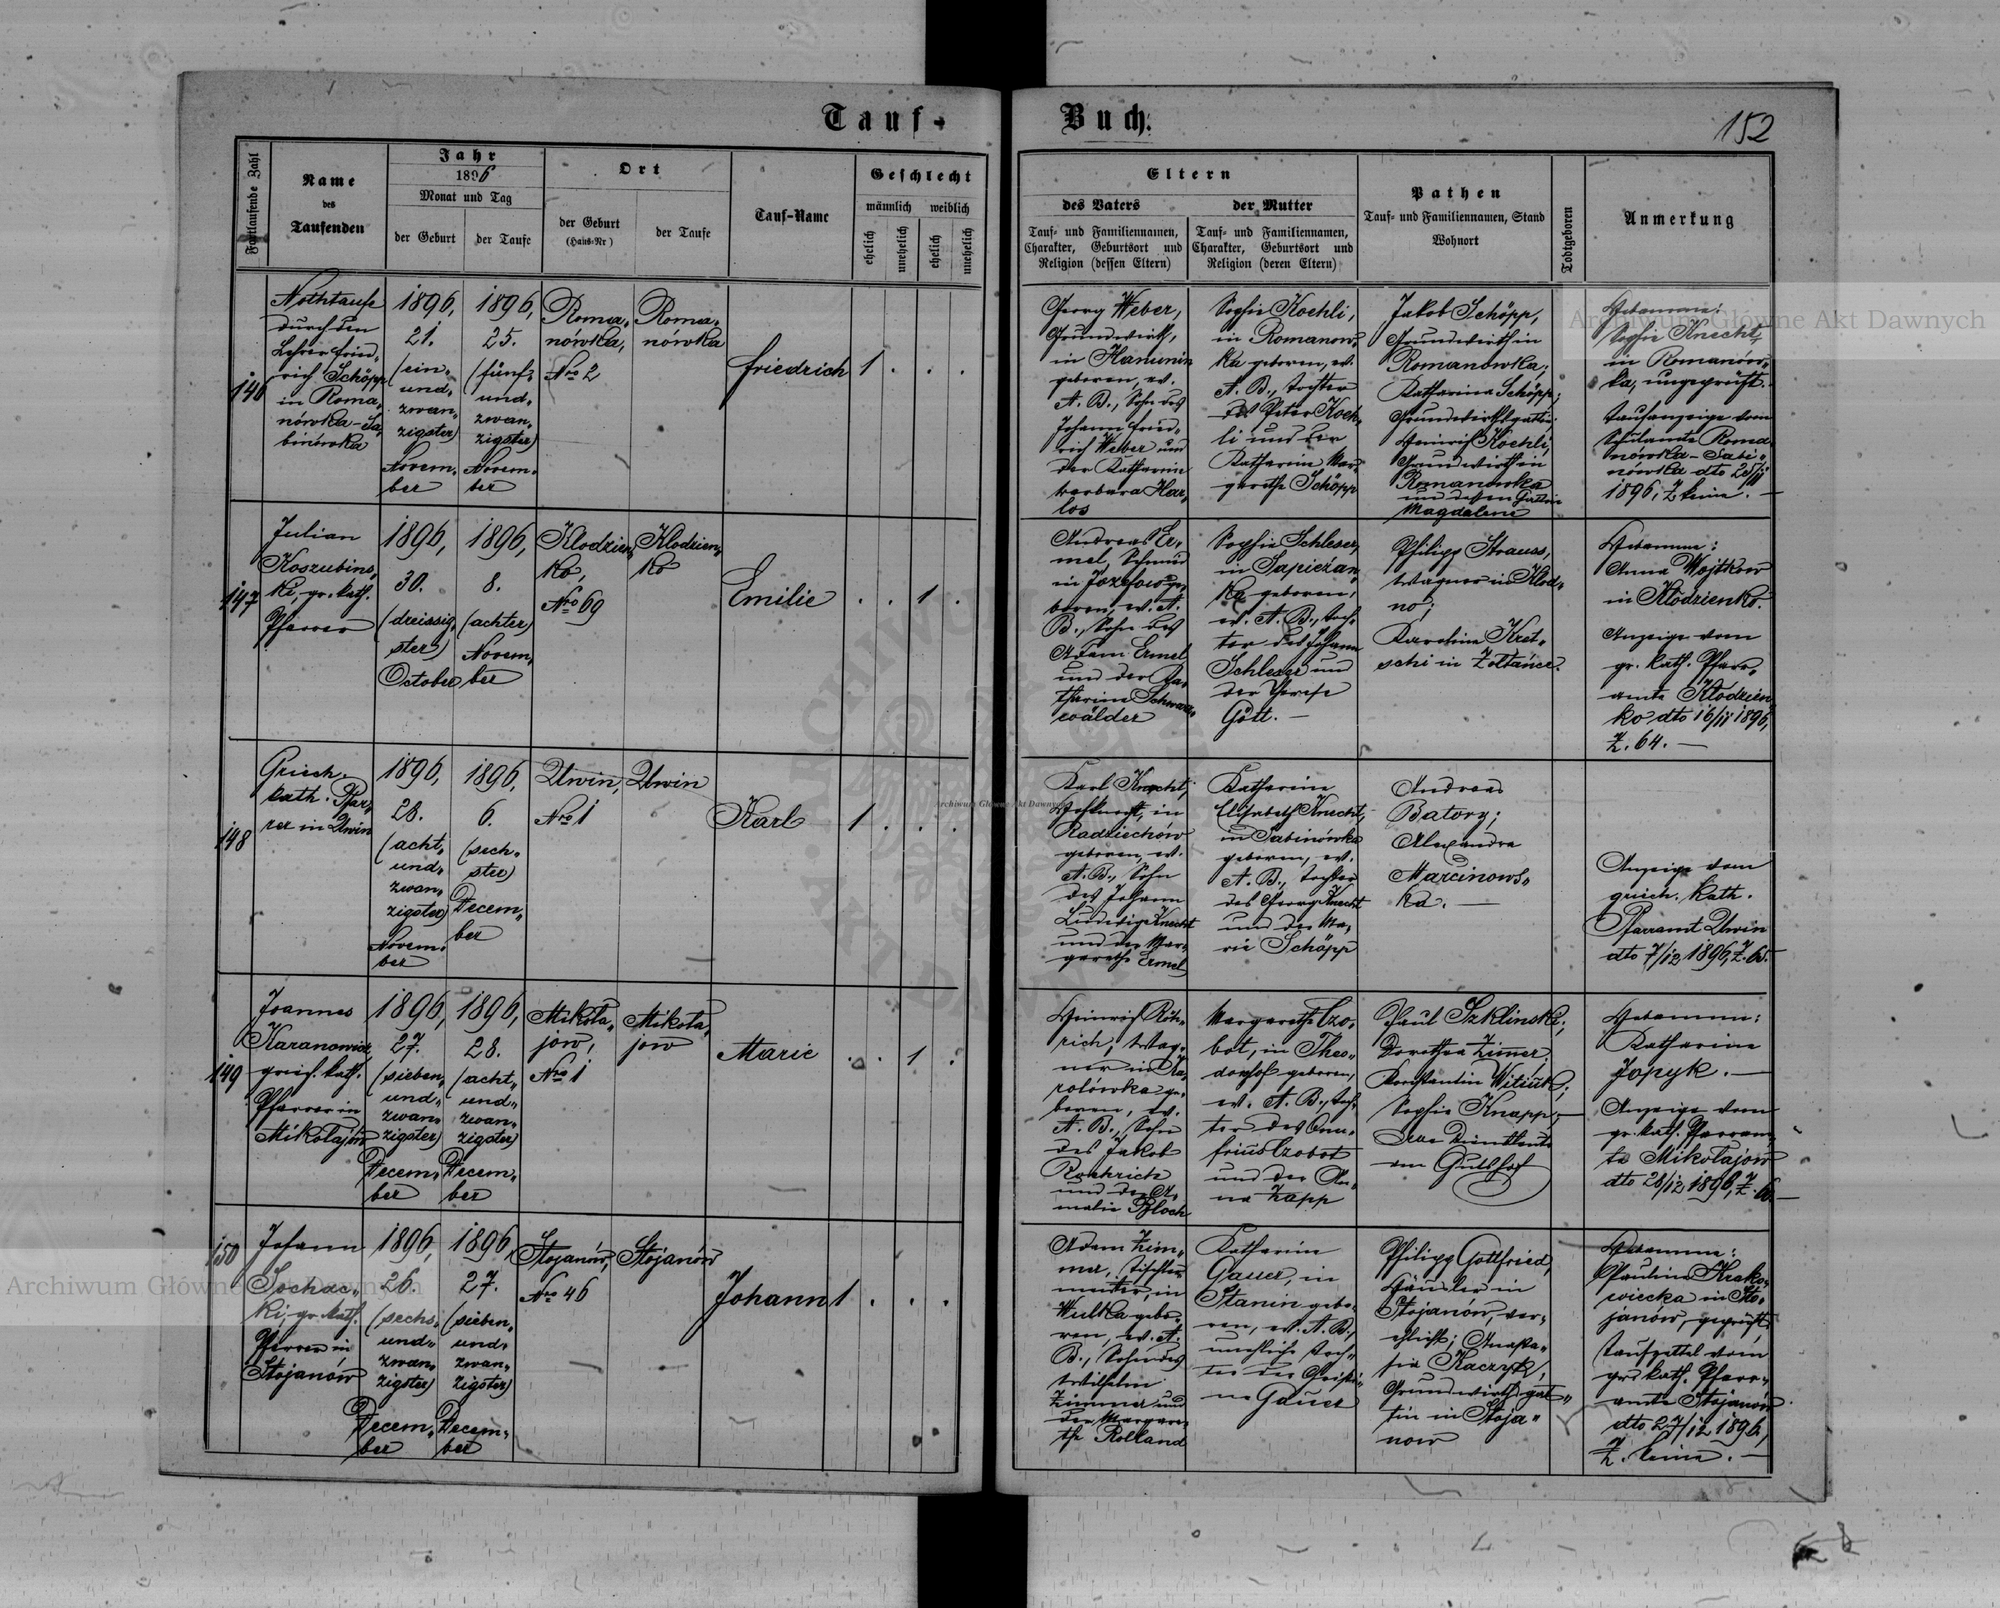 Tauf-Buch.
152
Fortlaufende Zahl
Name
des
Taufenden
Jahr
1896
Monat und Tag
der Geburt
der Taufe
Ort
der Geburt
(Haus-Nr)
der Taufe
Tauf-Name
Geschlecht
männlich weiblich
ehelich
unehelich
ehelich
unehelich
Eltern
des Vaters
Tauf- und Familiennamen,
Charakter, Geburtsort und
Religion (dessen Eltern)
der Mutter
Tauf- und Familiennamen,
Charakter, Geburtsort und
Religion (deren Eltern)
Pathen
Tauf- und Familiennamen, Stand
Wohnort
Todtgeboren
Anmerkung
146
Nothtaufe
durch den
Lehrer Fried-
rich Schöpp
in Roma-
nówka-Sa-
binówka
1896,
21.
(ein-
und-
zwan-
zigster)
Novem-
ber
1896,
25.
(fünf-
und-
zwan-
zigster)
Novem-
ber
Roma-
nówka,
Nro 2
Roma-
nówka
Friedrich
1 . . .
Georg Weber,
Grundwirth,
in Hanunin
geboren, ev.
A. B., Sohn des
Johann Fried-
rich Weber und
der Katharina
Barbara Har-
los
Sophie Koehli,
in Romanow-
ka geboren, ev.
A. B., Tochter
des Peter Koeh-
li und der
Katharina Mar-
garethe Schöpp
Jakob Schöpp,
Grundwirth in
Romanówka;
Katharina Schöpp,
Grundwirthsgattin;
Heinrich Koehli,
Grundwirth in
Romanówka
und dessen Gattin
Magdalene
Hebamme:
Sophie Knecht,
in Romanów-
ka, ungeprüft.
Taufanzeige vom
Schulamte Roma-
nówka-Sabi-
nówka dto 25/11
1896, Z. keine. —
147
Julian
Koszubins-
ki, gr. kath.
Pfarrer
1896,
30.
(dreissig-
ster)
October
1896,
8.
(achter)
Novem-
ber
Klodzien-
ko,
Nro 69
Klodzien-
ko
Emilie
. . 1 .
Andreas Er-
mel, Schmied
in Józefow ge-
boren, ev. A.
B., Sohn des
Adam Ermel
und der Ka-
tharina Schwarz-
wälder
Sophie Schleser,
in Sapiezan-
ka geboren,
ev. A. B., Toch-
ter des Johann
Schleser und
der Therese
Gött. —
Philipp Strauss,
Wagner in Klod-
no;
Karolina Kret-
schi in Żołtańce.
Hebamme:
Anna Wojtkow
in Kłodzienko.
Anzeige vom
gr. kath. Pfarr-
amte Kłodzien-
ko dto 16/11 1896,
Z. 64. —
148
Griech.
kath. Pfar-
rer in Uwin
1896,
28.
(acht-
und-
zwan-
zigster)
Novem-
ber
1896,
6.
(sech-
ster)
Decem-
ber
Uwin,
Nro 1
Uwin
Karl
1 . . .
Karl Knecht,
in
Radziechów
geboren, ev.
A. B., Sohn
des Johann
Ludwig Knecht
und der Mar-
garethe Ermel
Katharina
Elisabeth Knecht,
in Sabinówka
geboren, ev.
A. B., Tochter
des Georg Knecht
und der Ma-
rie Schöpp
Andreas
Batory;
Alexandra
Marcinows-
ka. —
Anzeige vom
griech. kath.
Pfarramt Uwin
dto 7/12 1896, Z. 65.
149
Joannes
Karanowicz
griech. kath.
Pfarrer in
Mikołajów
1896,
27.
(sieben-
und-
zwan-
zigster)
Decem-
ber
1896,
28.
(acht-
und-
zwan-
zigster)
Decem-
ber
Mikoła-
jow,
Nro 1
Mikoła-
jow
Marie
. . 1 .
Heinrich Röh-
rich, Wag-
ner in Ka-
rolówka ge-
boren, ev.
A. B., Sohn
des Jakob
Roehrich
und der A-
malie Bloch
Margarethe Czo-
bot, in Theo-
dorshof geboren,
ev. A. B., Toch-
ter des Onu-
frius Czobot
und der An-
na Zapp
Paul Szklinski;
Dorothea Zimer,
Konstantin Witiuk;
Sophie Knapp; —
alle Dienstleute
am Gutshof
Hebamme:
Katharina
Jopyk. —
Anzeige vom
gr. kath. Pfarram-
te Mikołajów
dto 28/12 1896, Z. 60. —
150
Johann
Sochac-
ki, gr. kath.
Pfarrer in
Stojanów
1896,
26.
(sechs-
und-
zwan-
zigster)
Decem-
ber
1896,
27.
(sieben-
und-
zwan-
zigster)
Decem-
ber
Stojanów,
Nro 46
Stojanów
Johann
1 . . .
Adam Zim-
mer, Tischler-
meister, in
Wulka gebo-
ren, ev. A.
B., Sohn des
Wilhelm
Zimmer und
der Margare-
the Rolland
Katharina
Gauer, in
Stanin gebo-
ren, ev. A. B.,
uneheliche Toch-
ter der Christi-
ne Gauer
Philipp Gottfried,
Häusler in
Stojanów, ver-
ehlicht; Anasta-
sia Kaczyk,
Grundwirthsgat-
tin in Stoja-
now
Hebamme:
Pauline Krako-
wiecka in Sto-
janów, geprüft,
Taufzettel vom
gr. kath. Pfarr-
amte Stojanów
dto 27/12 1896,
Z. keine. —
Archiwum Główne Akt Dawnych
Archiwum Główne Akt Dawnych
Archiwum Główne Akt Dawnych